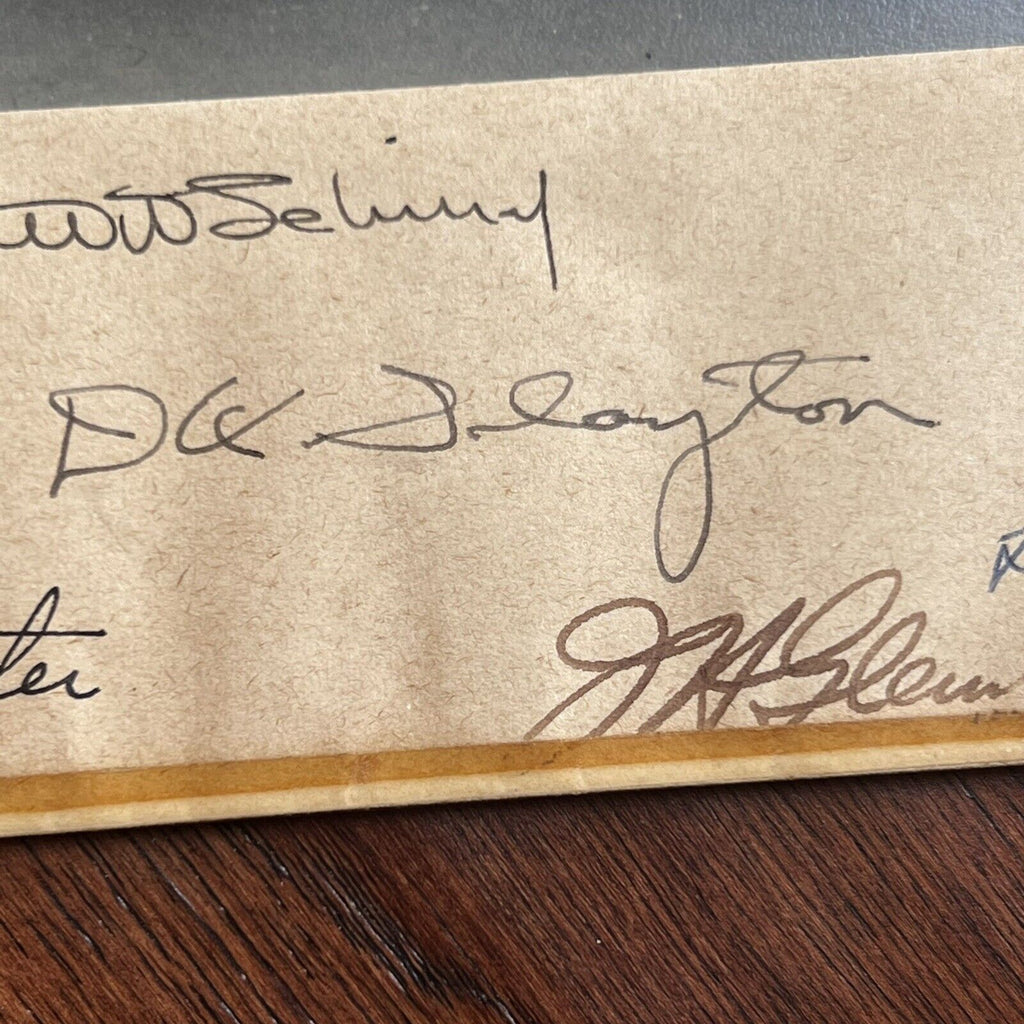 Schirra
D K Slayton
ter
JH Glenn